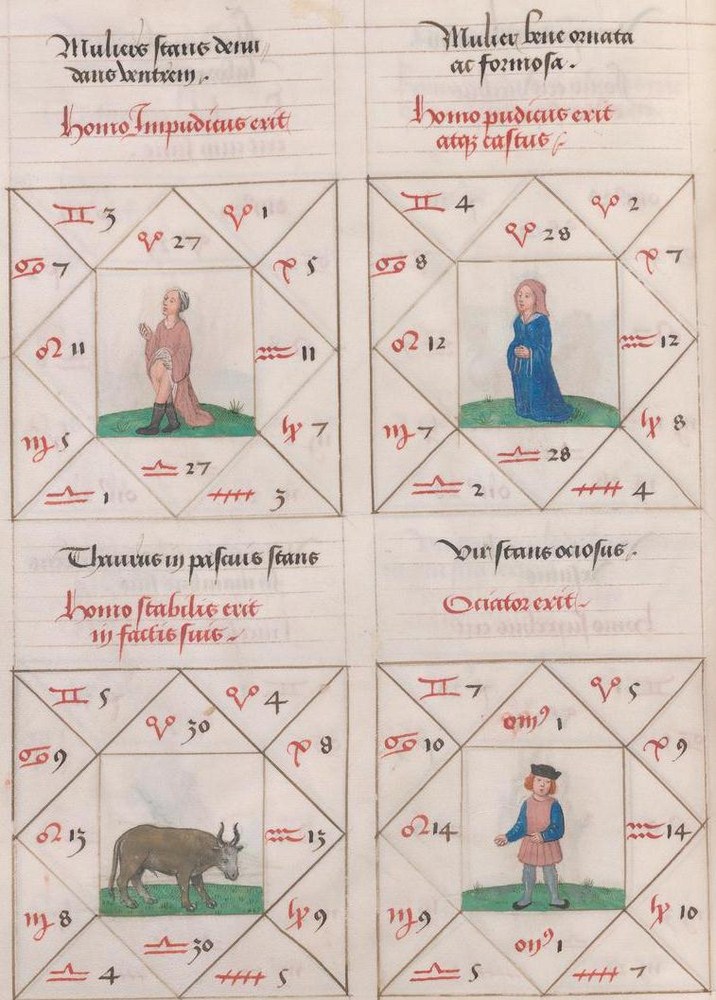 Muliers stans denu
dans ventrem.
homo Impudicus erit
♊ 3
♈ 1
♈ 27
♋ 7
♓ 5
♌ 11
♒ 11
♍ 5
♑ 7
♎ 27
♎ 1
♐ 3
Mulier bene ornata
ac formosa.
homo pudicus erit
atqꝫ castus
♊ 4
♈ 2
♈ 28
♋ 8
♓ 7
♌ 12
♒ 12
♍ 7
♑ 8
♎ 28
♎ 2
♐ 4
Thaurus in pascuis stans
homo stabilis erit
in factis suis
♊ 5
♈ 4
♈ 30
♋ 9
♓ 8
♌ 13
♒ 13
♍ 8
♑ 9
♎ 30
♎ 4
♐ 5
Vir stans ociosus.
Ociator erit
♊ 7
♈ 5
1
♋ 10
♓ 9
♌ 14
♒ 14
♍ 9
♑ 10
1
♎ 5
♐ 7